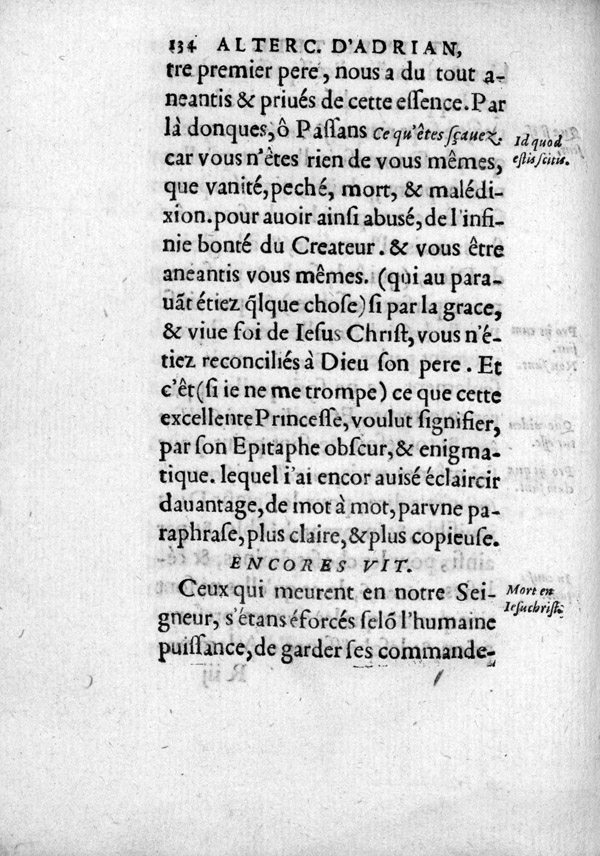 134 ALTERC. D'ADRIAN,
tre premier pere, nous a du tout a-
neantis & priués de cette eſſence. Par
là donques, ô Paſſans Ce qu'êtes ſçauez.
Id quod
eſtis ſcitis.
car vous n'êtes rien de vous mêmes,
que vanité, peché, mort, & malédi-
xion. pour auoir ainſi abusé, de l'infi-
nie bonté du Createur. & vous être
aneantis vous mêmes. (qui au para-
uãt étiez q̃lque choſe) ſi par la grace,
& viue foi de Ieſus Chriſt, vous n'é-
tiez reconciliés à Dieu ſon pere. Et
c'êt (ſi ie ne me trompe) ce que cette
excellente Princeſſe, voulut ſignifier,
par ſon Epitaphe obſcur, & enigma-
tique. lequel i'ai encor auisé éclaircir
dauantage, de mot à mot, par vne pa-
raphraſe, plus claire, & plus copieuſe.
ENCORES VIT.
Ceux qui meurent en notre Sei-
Mort en
Ieſuchriſt.
gneur, s'étans éforcés ſelõ l'humaine
puiſſance, de garder ſes commande-